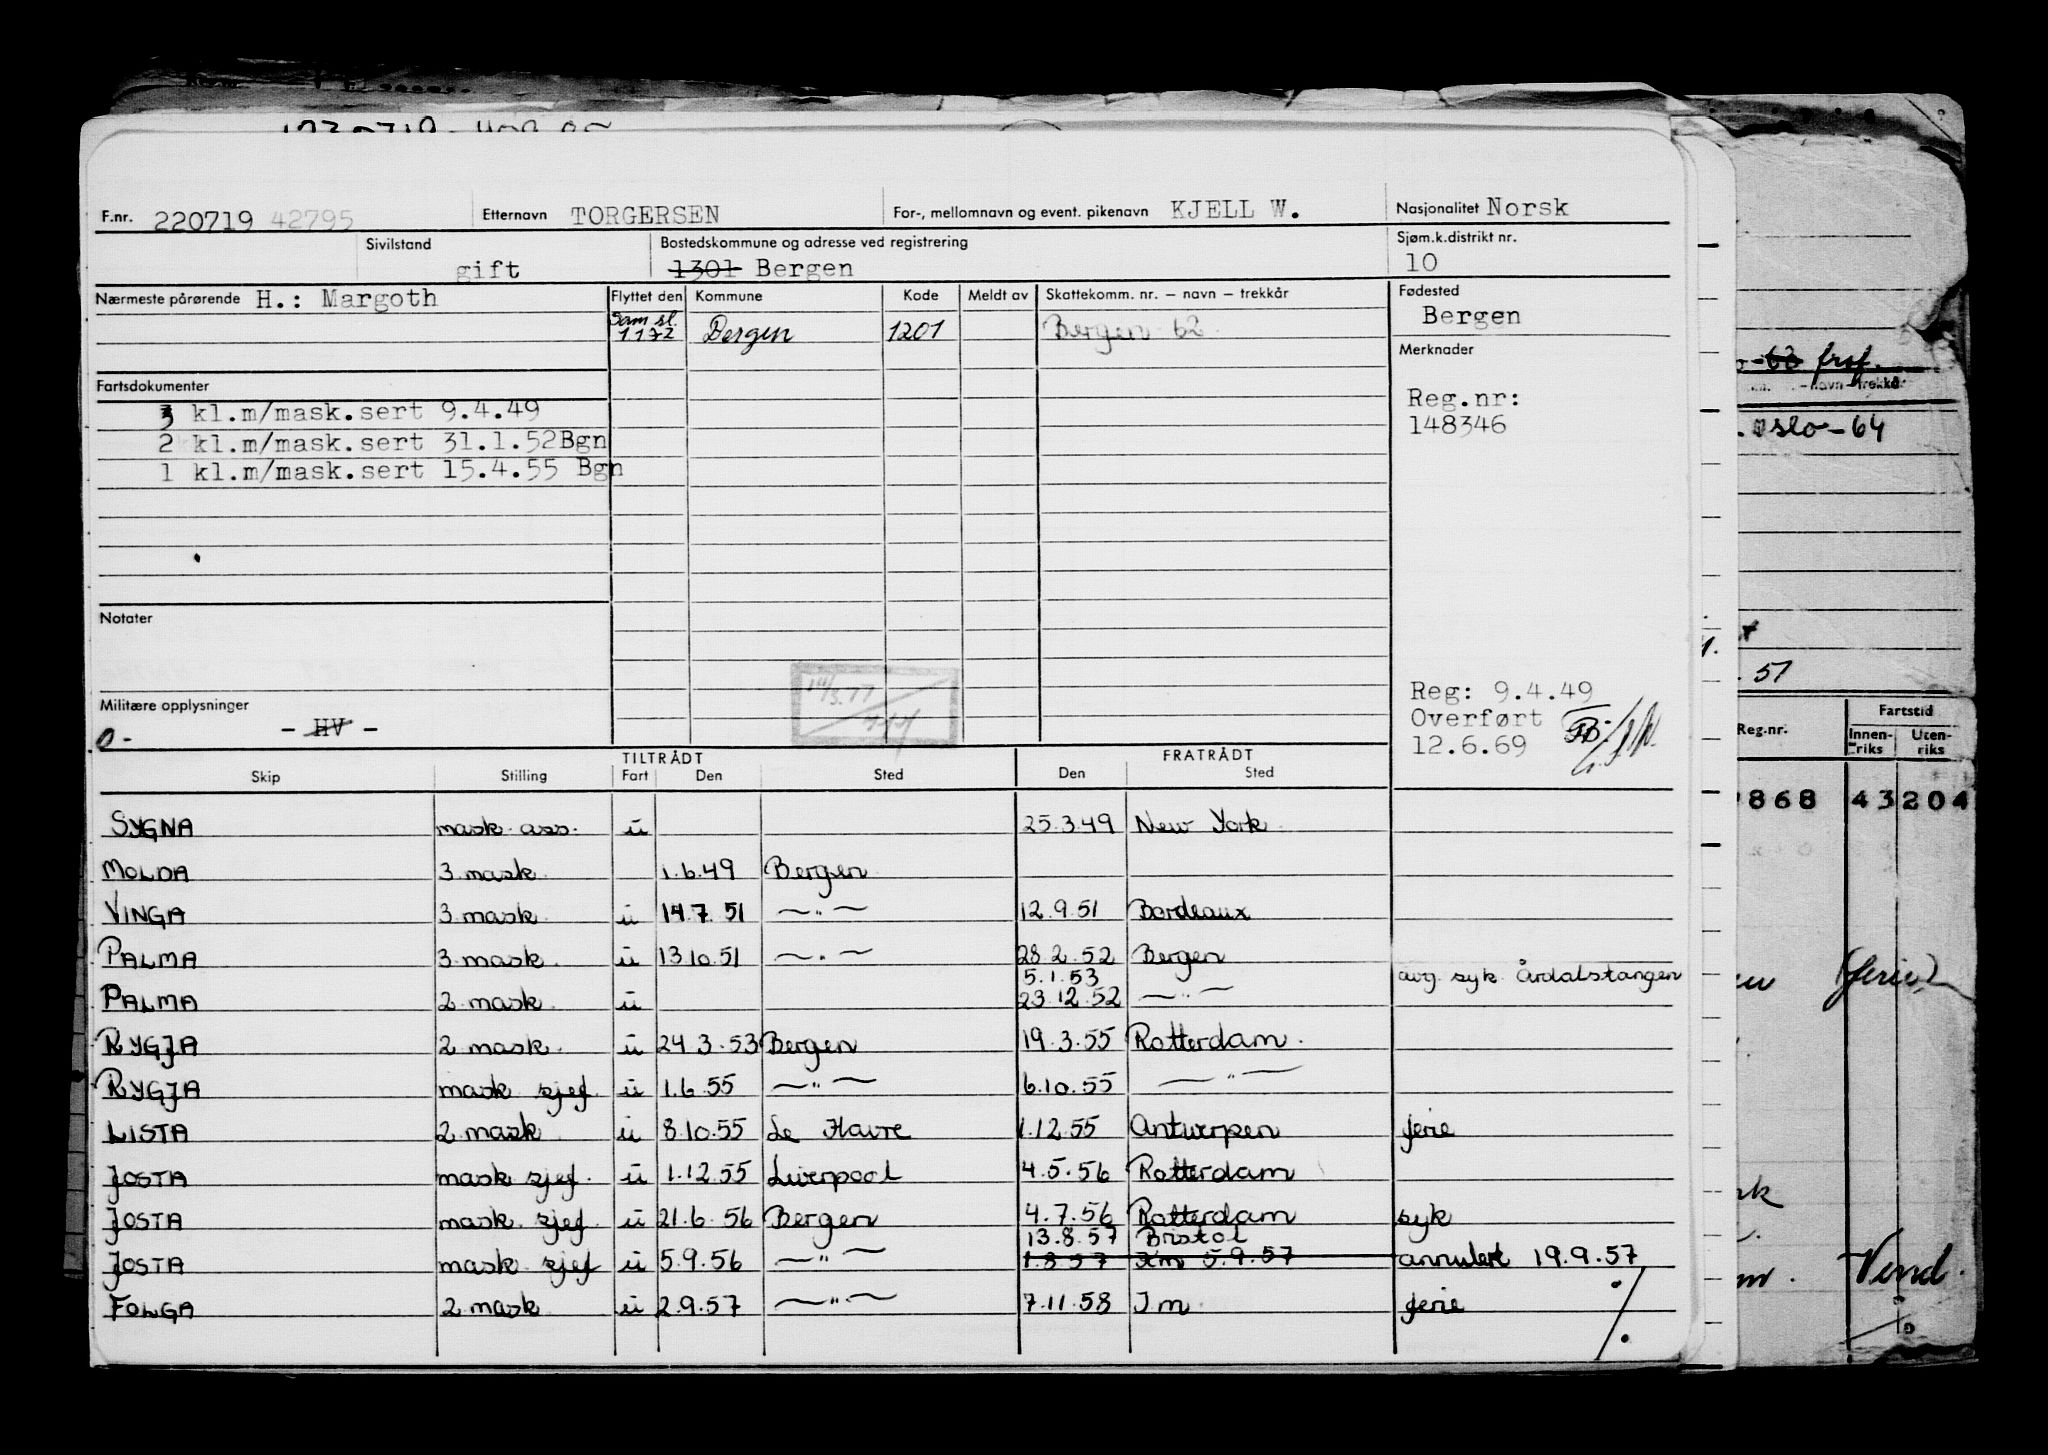 F.nr. 220719 42795 Etternavn TORGERSEN For-, mellomnavn og event. pikenavn KJELL W. Nasjonalitet Norsk
Sivilstand gift Bostedskommune og adresse ved registrering 1301 Bergen Sjøm.k.distrikt nr. 10
Nærmeste pårørende H.: Margoth Flyttet den Kommune Kode Meldt av Skattekomm. nr. – navn – trekkår Fødested
Bergen
Sam sl.
1172 Bergen 1201 Bergen 62
Merknader
Fartsdokumenter
3 kl.m/mask.sert 9.4.49
2 kl.m/mask.sert 31.1.52 Bgn
1 kl.m/mask.sert 15.4.55 Bgn
Reg.nr:
148346
Notater
14/3.77
Militære opplysninger
0- - HV -
Reg: 9.4.49
Overført
12.6.69
TILTRÅDT FRATRÅDT
Skip Stilling Fart Den Sted Den Sted
SYGNA mask. ass. u 25.3.49 New York
MOLDA 3. mask 1.6.49 Bergen
VINGA 3. mask u 14.7.51 —"— 12.9.51 Bordeaux
PALMA 3. mask. u 13.10.51 —"— 28.2.52 Bergen
5.1.53 avg. syk Årdalstangen
PALMA 2. mask u 23.12.52 —"—
RYGJA 2. mask. u 24.3.53 Bergen 19.3.55 Rotterdam.
RYGJA mask sjef. u 1.6.55 —"— 6.10.55 —"—
LISTA 2. mask u 8.10.55 Le Havre 1.12.55 Antwerpen ferie
JOSTA mask sjef. u 1.12.55 Liverpool 4.5.56 Rotterdam
JOSTA mask. sjef u 21.6.56 Bergen 4.7.56 Rotterdam syk
13.8.57 Bristol
JOSTA mask. sjef u 5.9.56 —"— 1.8.57 Im 5.9.57 annulert 19.9.57
FOLGA 2. mask u 2.9.57 —"— 7.11.58 Im ferie
63 frsf.
– navn – trekkå
Oslo-64
51
Reg.nr. Fartstid
Innen-riks Uten-riks
868 43 204
(ferie)
Vend.